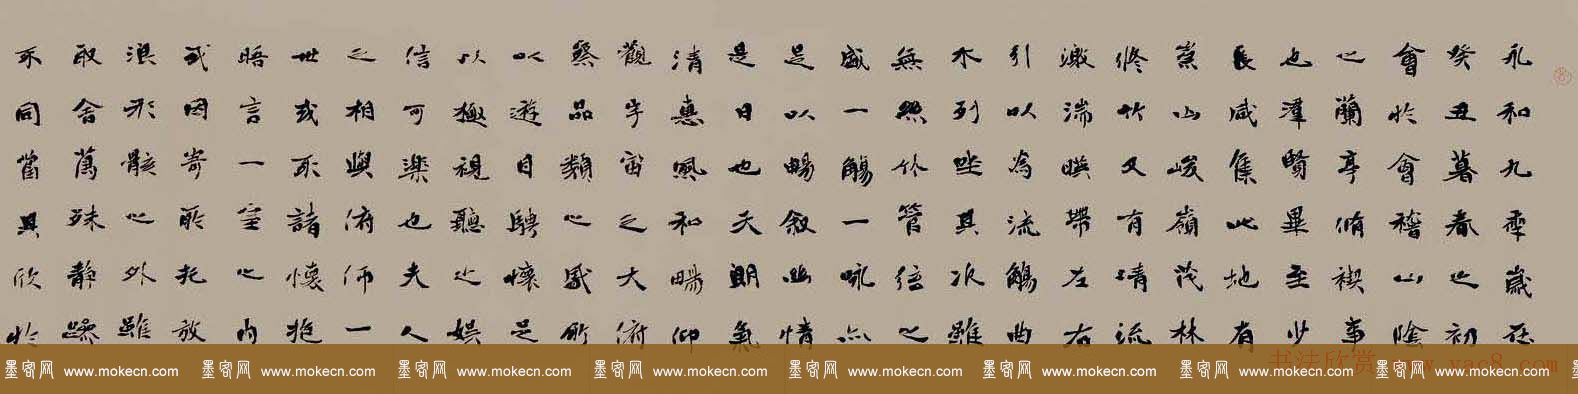 永和九年歲在
癸丑暮春之初
會於會稽山陰
之蘭亭脩禊事
也羣賢畢至少
長咸集此地有
崇山峻嶺茂林
修竹又有清流
激湍暎帶左右
引以為流觴曲
水列坐其次雖
無絲竹管弦之
盛一觴一詠亦
足以暢敘幽情
是日也天朗氣
清惠風和暢仰
觀宇宙之大俯
察品類之盛所
以遊目騁懷足
以極視聽之娛
信可樂也夫人
之相與俯仰一
世或取諸懷抱
晤言一室之內
或因寄所託放
浪形骸之外雖
取舍萬殊靜躁
不同當其欣於
书法欣赏 www.yac8.com
墨客网 www.mokecn.com 墨客网 www.mokecn.com 墨客网 www.mokecn.com 墨客网 www.mokecn.com 墨客网 www.mokecn.com 墨客网 www.mokecn.com 墨客网 www.mokecn.com 墨客网 www.mokecn.com